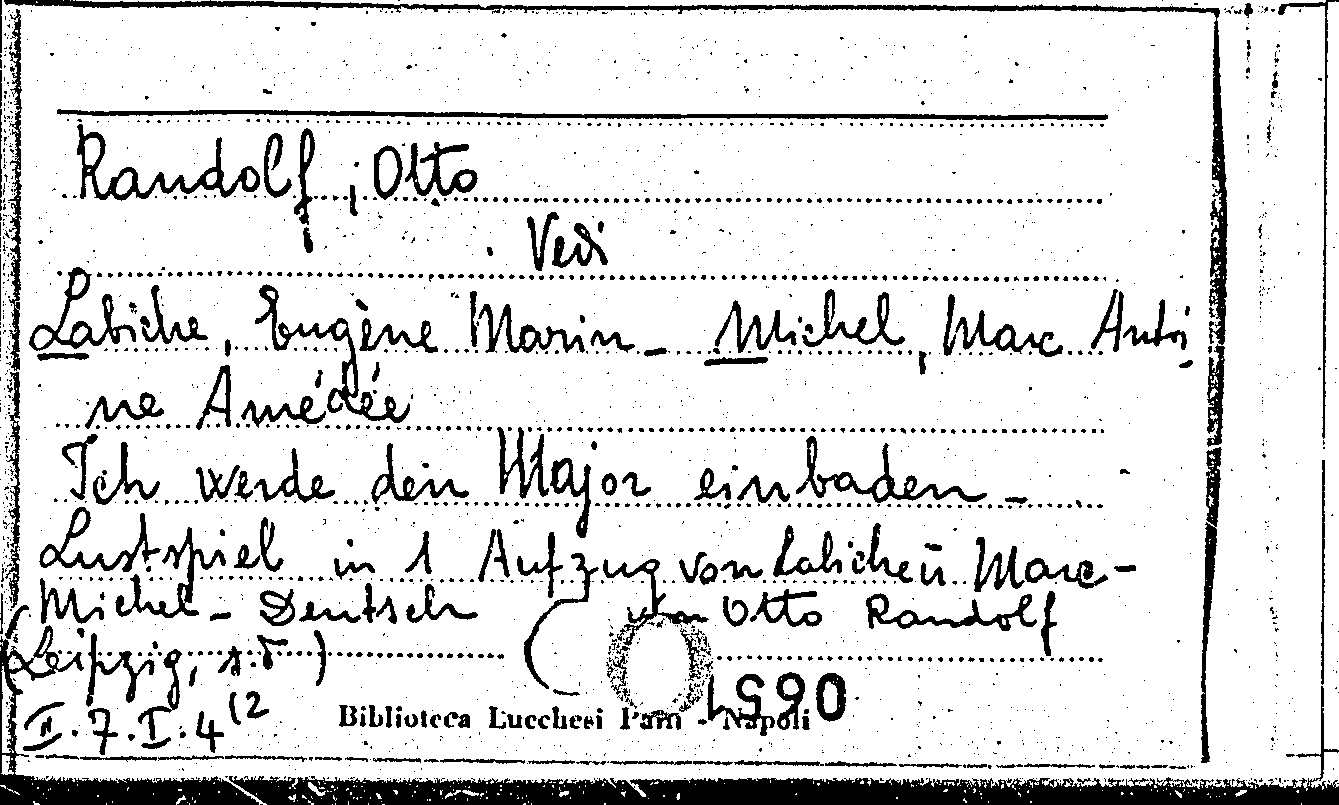 Randolf, Otto
Vedi
Labiche, Eugène Marin - Michel, Marc Antoi
ne Amédée
Ich werde den Major einbaden -
Lustspiel in 1 Aufzug von Labiche ū Marc-
Michel - Deutsch von Otto Randolf
(Leipzig, s.d)
II.7.I.4(2
Biblioteca Lucchesi Palli - Napoli
0651